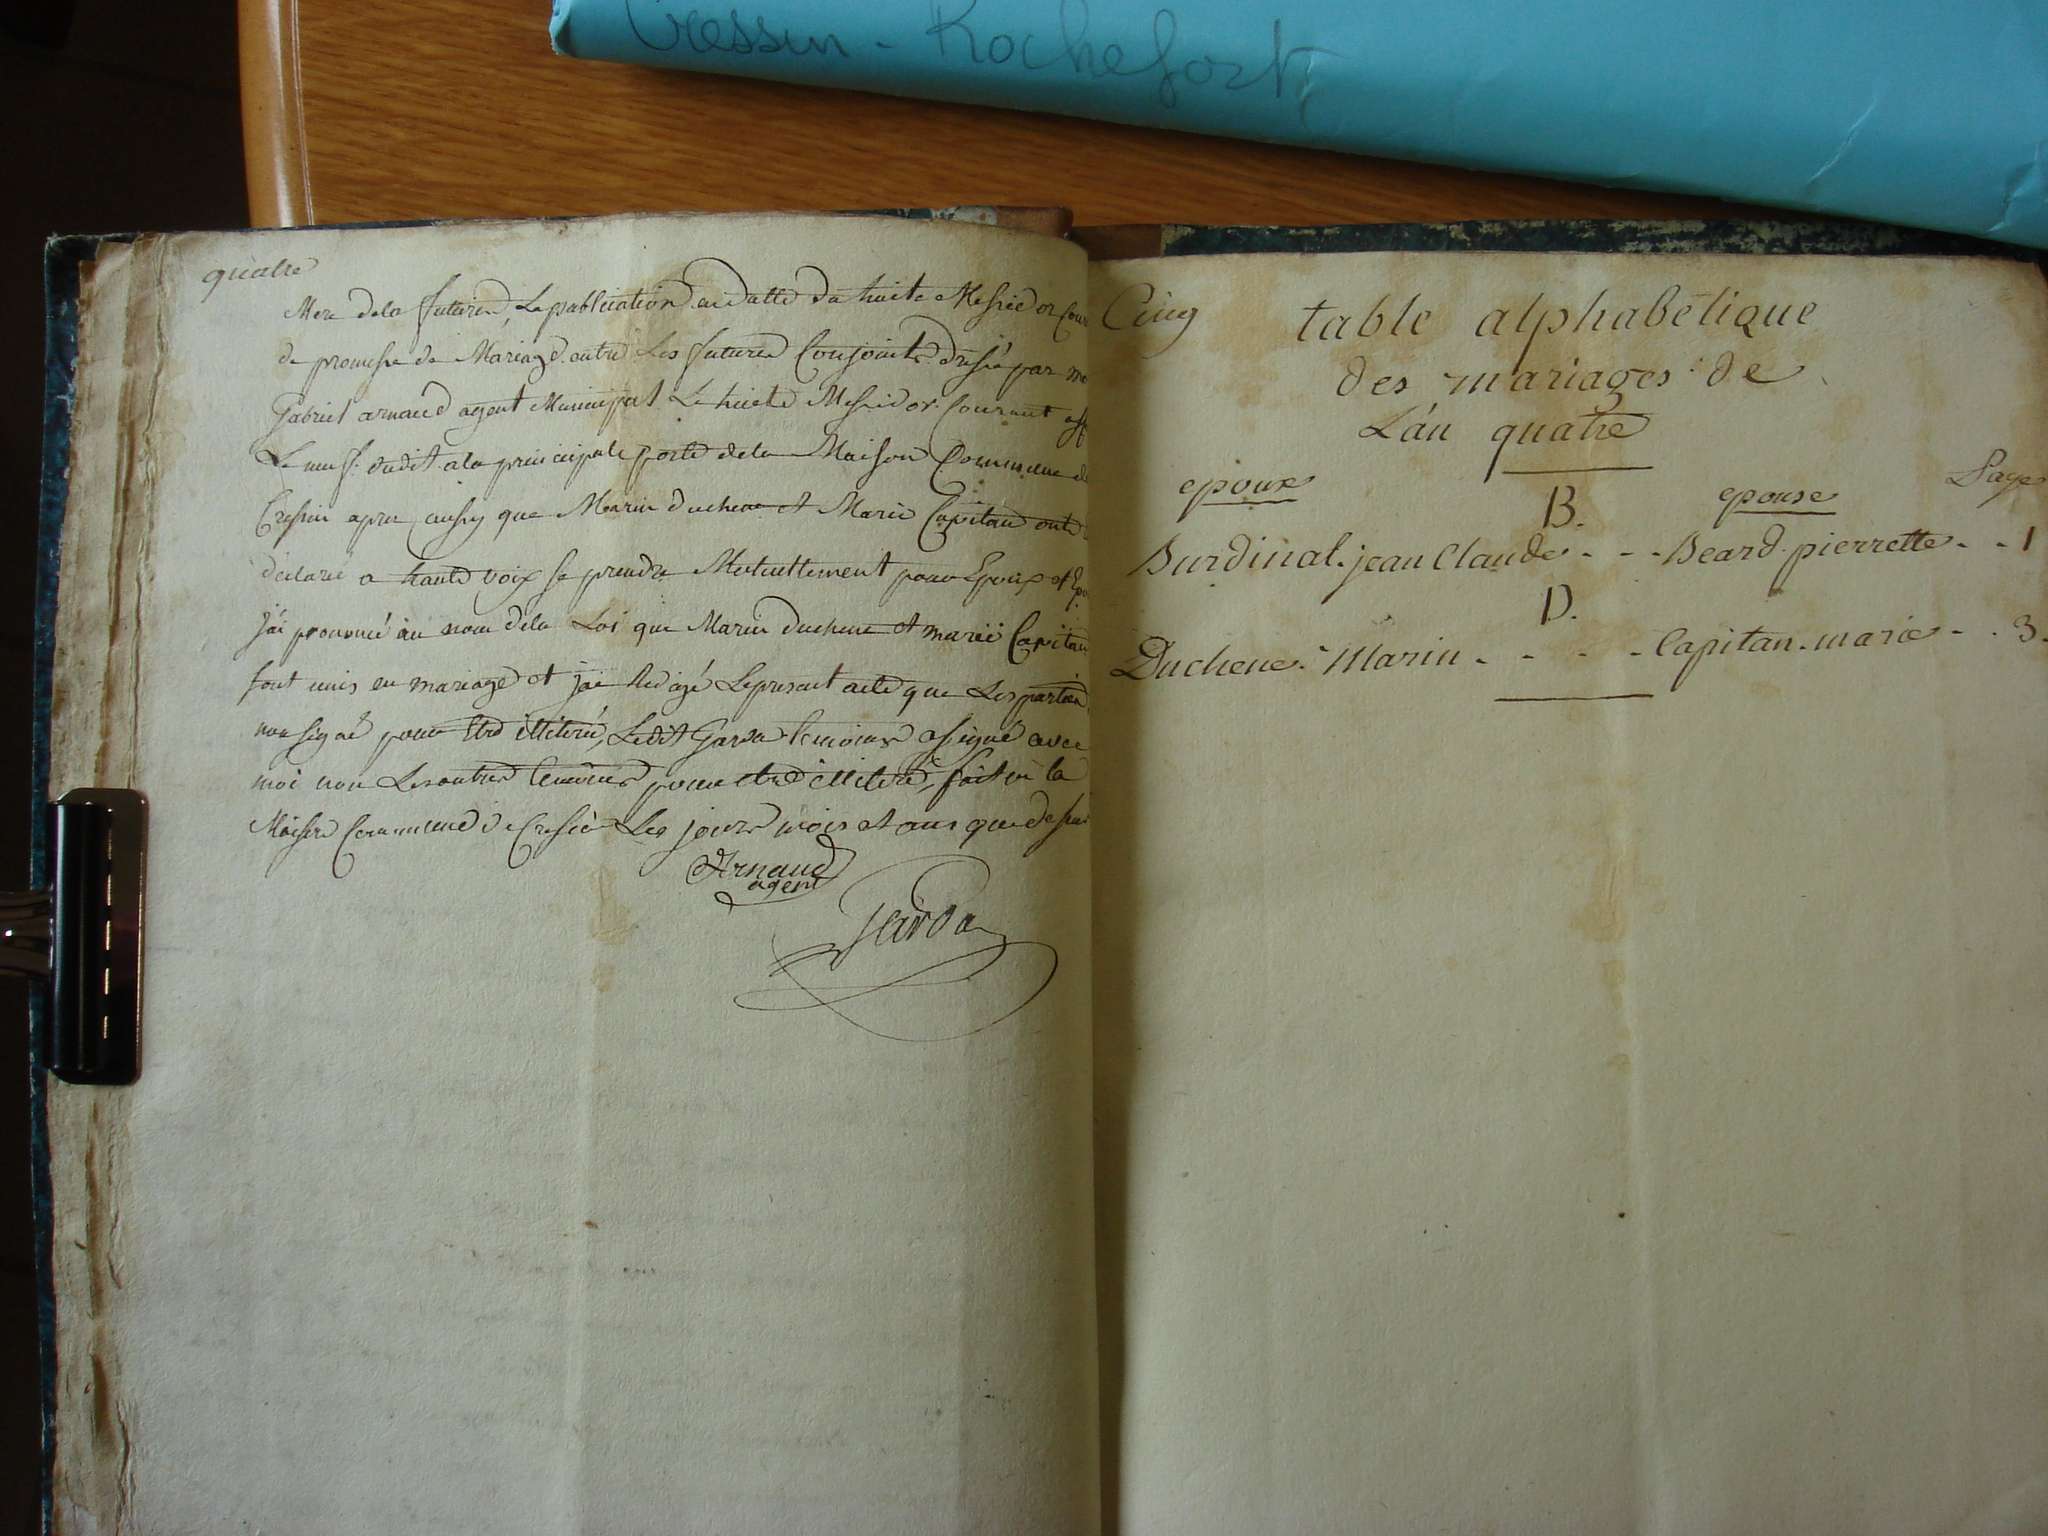 Cressin - Rochefort
quatre
Mere dela future, La publication en datte du huite Messidor Cour
de promesse de Mariage entre Les futures Conjoints dressé par moi
Gabriel arnaud agent Municipal Le huite Messidor Courant aff
Le neuf dudit a la principale porte dela Maison Commune de
Cressin apres aussy que Marin duchene et Marie Capitan ont
déclaré a haute voix se prendre Mutuellement pour Epoux et Epou
j'ai prononcé au nom dela Loi que Marin duchene et marie Capitan
sont unis en mariage et jai Redigé Le present acte que Les parties
non signé pour Etre illiteré, Ledit Garda temoins a signé avec
moi non Les autres temoins pour etre illiteré, fait en la
Maison Commune de Cressin Les jours mois et ans que dessus
Arnaud
agent
Garda
Cinq
table alphabétique
des mariages de
L'an quatre
epoux epouse Page
B.
Burdinal. jean Claude - - - Beard. pierrette - - 1
D.
Duchene. Marin - - - - Capitan. marie - - 3.